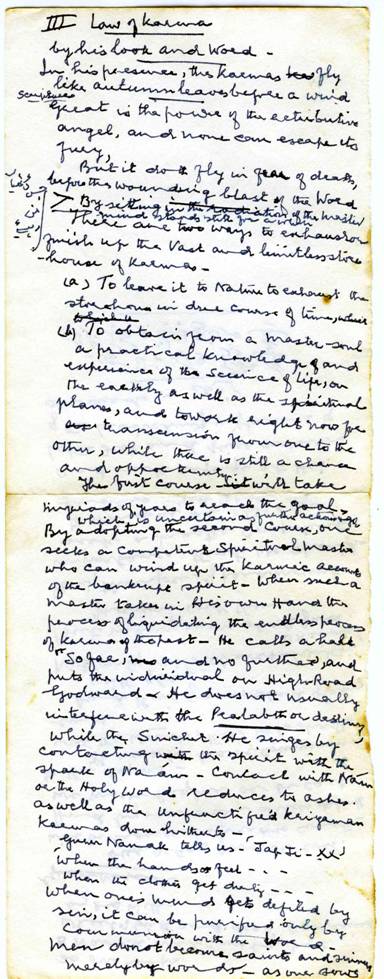 III Law of Karma
by his look and Word -
In his presence, the Karmas fly
like autumn leaves before a wind
Scriptures
Great is the power of the retributive
angel, and none can escape its
fury,
But it doth fly in fear of death,
before the wounding blast of the Word
By sitting in the radiation of the Master
mind stands still for a while
There are two ways to exhaust or
finish up the Vast and limitless store
-house of Karmas -
(a) To leave it to Nature to exhaust the
storehouse in due course of time,
(b) To obtain from a Master-soul
a practical knowledge of and
experience of the Science of life, on
the earthly as well as the spiritual
planes, and to work right now for
transcension from one to the
other, while there is still a chance
and opportunity
The first course will take
myriads of years to reach the goal,
which is uncertain of further
By adopting the second Course, one
seeks a Competent Spiritual Master
who can wind up the Karmic account
of the bankrupt spirit - When such a
Master takes in His own Hand the
process of liquidating the endless process
of Karma of the past - He calls a halt
"So far, and no further, and
puts the individual on High Road
Godward - He does not usually
interfere with the Pralabdh or destiny
while the Sinchit He singes by
contacting the spirit with the
spark of Naam - Contact with Naam
or the Holy Word reduces to ashes
as well as the unfructified kriyaman
Karmas done hitherto -
Guru Nanak tells us - 'Jap Ji - XX'
'When the hands feet - - -
When the clothes get dirty - - -
When ones mind gets defiled by
sin, it can be purified only by
Communion with the Word -
Men do not become saints and sinners
merely by words - as one sows